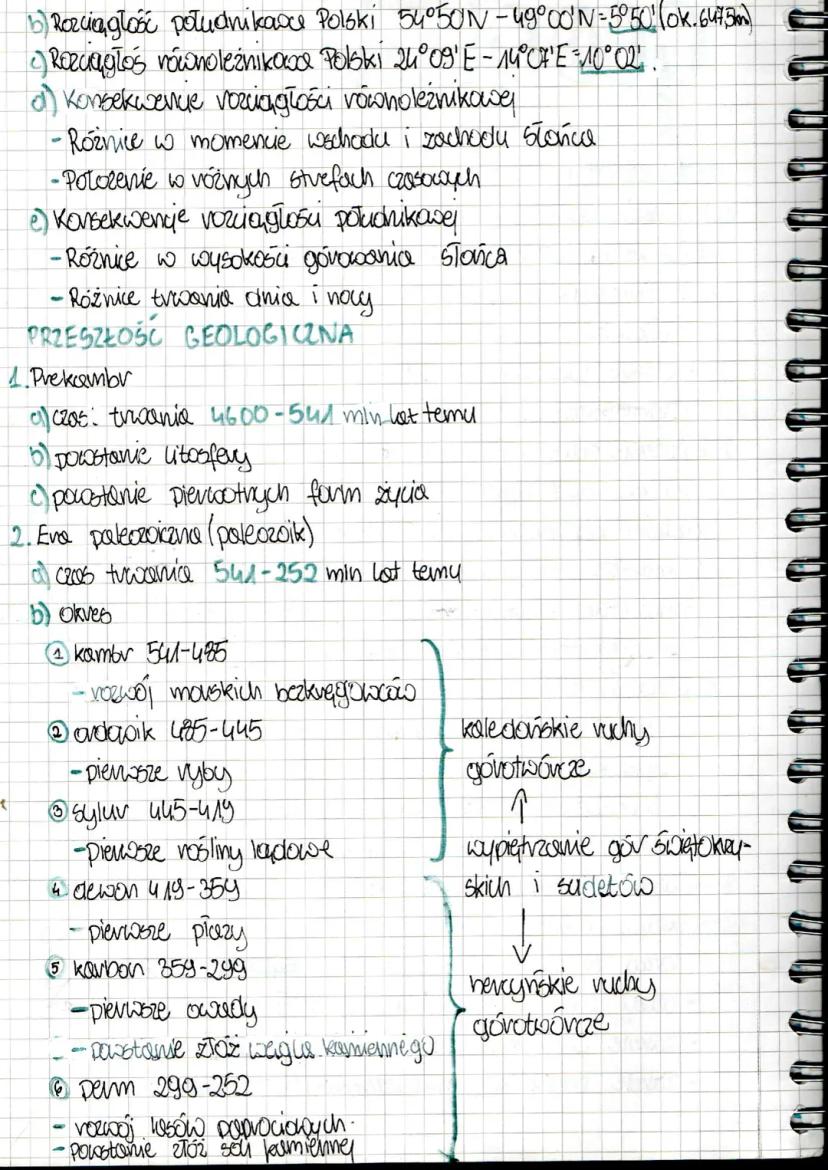 b) Rozciągłość południkowa Polski 54°50'N - 49°00'N = 5°50' (ok. 647,5m)
c) Rozciągłoś równoleżnikowa Polski 24°09'E - 14°07'E = 10°02'.
d) Konsekwencje rozciągłości równoleżnikowej
- Różnice w momencie wschodu i zachodu Słońca
- Położenie w różnych strefach czasowych
e) Konsekwencje rozciągłości południkowej
- Różnice w wysokości górowania Słońca
- Różnice trwania dnia i nocy
PRZESZŁOŚĆ GEOLOGICZNA
1. Prekambr
a) czas: trwania 4600-541 mln lat temu
b) powstanie litosfery
c) powstanie pierwotnych form życia
2. Era paleozoiczna (paleozoik)
a) czas trwania 541-252 mln lat temu
b) okres
① kambr 541-485
- rozwój morskich bezkręgowców
② ordowik 485-445
- pierwsze ryby
③ sylur 445-419
- pierwsze rośliny lądowe
④ dewon 419-359
- pierwsze płazy
⑤ karbon 359-299
- pierwsze owady
- powstanie złóż węgla kamiennego
⑥ perm 299-252
- rozwój lasów paprociowych
- powstanie złóż soli kamiennej
kaledońskie ruchy
górotwórcze
↑
wypiętrzanie gór świętokrzy-
skich i sudetów
↓
hercyńskie ruchy
górotwórcze